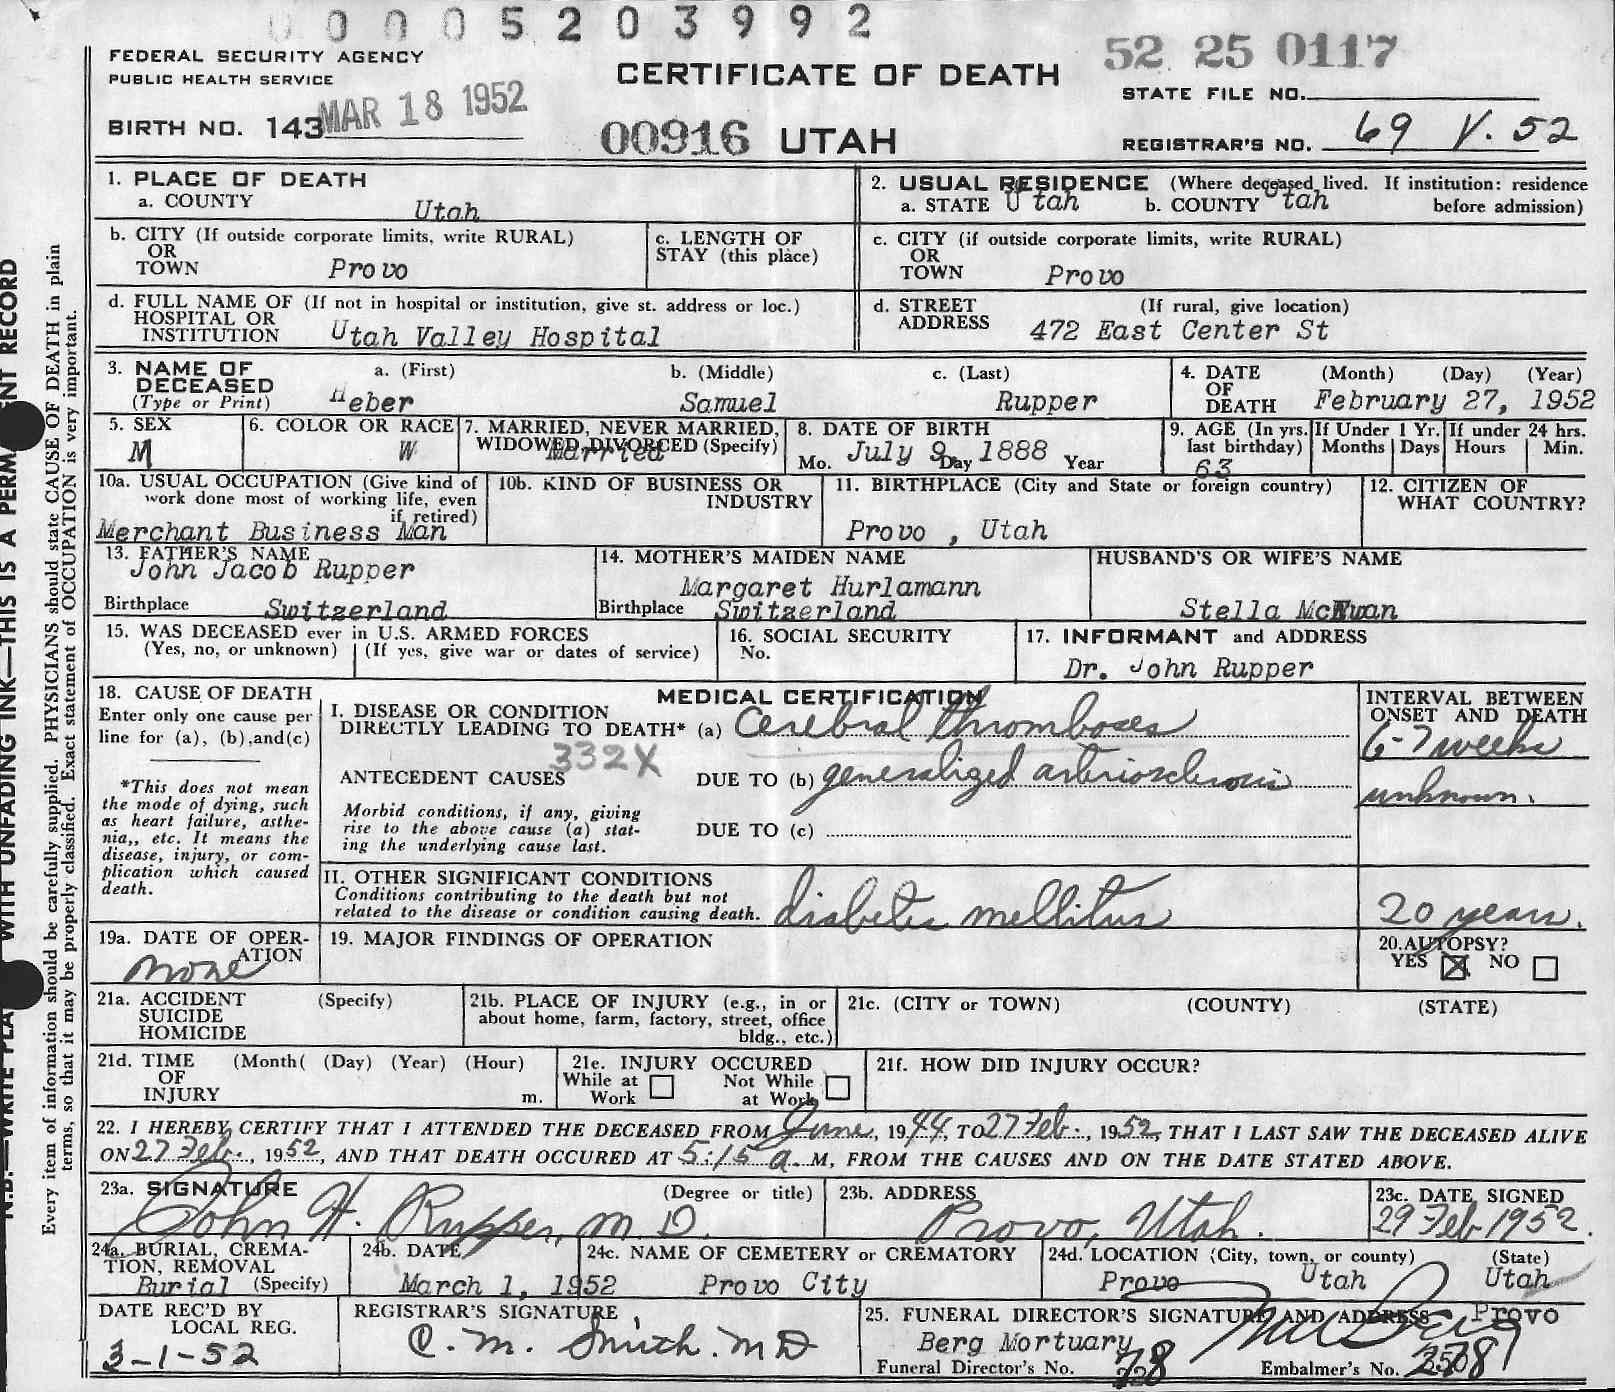 0 0 0 5 2 0 3 9 9 2
FEDERAL SECURITY AGENCY
PUBLIC HEALTH SERVICE
CERTIFICATE OF DEATH
52 25 0117
STATE FILE NO.
MAR 18 1952
BIRTH NO. 143
00916 UTAH
REGISTRAR'S NO. 69 V. 52
1. PLACE OF DEATH
a. COUNTY Utah
2. USUAL RESIDENCE (Where deceased lived. If institution: residence before admission)
a. STATE Utah b. COUNTY Utah
b. CITY (If outside corporate limits, write RURAL)
OR
TOWN Provo
c. LENGTH OF
STAY (this place)
c. CITY (if outside corporate limits, write RURAL)
OR
TOWN Provo
d. FULL NAME OF (If not in hospital or institution, give st. address or loc.)
HOSPITAL OR
INSTITUTION Utah Valley Hospital
d. STREET (If rural, give location)
ADDRESS 472 East Center St
3. NAME OF
DECEASED
(Type or Print)
a. (First) b. (Middle) c. (Last)
Heber Samuel Rupper
4. DATE (Month) (Day) (Year)
OF
DEATH February 27, 1952
5. SEX
M
6. COLOR OR RACE
W
7. MARRIED, NEVER MARRIED,
WIDOWED, DIVORCED (Specify)
Married
8. DATE OF BIRTH
Mo. July 9 Day 1888 Year
9. AGE (In yrs.
last birthday)
63
If Under 1 Yr.
Months Days
If under 24 hrs.
Hours Min.
10a. USUAL OCCUPATION (Give kind of
work done most of working life, even
if retired)
Merchant Business Man
10b. KIND OF BUSINESS OR
INDUSTRY
11. BIRTHPLACE (City and State or foreign country)
Provo , Utah
12. CITIZEN OF
WHAT COUNTRY?
13. FATHER'S NAME
John Jacob Rupper
Birthplace Switzerland
14. MOTHER'S MAIDEN NAME
Margaret Hurlamann
Birthplace Switzerland
HUSBAND'S OR WIFE'S NAME
Stella McEwan
15. WAS DECEASED ever in U.S. ARMED FORCES
(Yes, no, or unknown) (If yes, give war or dates of service)
16. SOCIAL SECURITY
No.
17. INFORMANT and ADDRESS
Dr. John Rupper
18. CAUSE OF DEATH
Enter only one cause per
line for (a), (b),and(c)
*This does not mean
the mode of dying, such
as heart failure, asthe-
nia,, etc. It means the
disease, injury, or com-
plication which caused
death.
MEDICAL CERTIFICATION
I. DISEASE OR CONDITION
DIRECTLY LEADING TO DEATH* (a) Cerebral thromboses
332X
ANTECEDENT CAUSES
DUE TO (b) generalized arteriosclerosis
Morbid conditions, if any, giving
rise to the above cause (a) stat-
ing the underlying cause last.
DUE TO (c)
INTERVAL BETWEEN
ONSET AND DEATH
6-7 weeks
unknown.
II. OTHER SIGNIFICANT CONDITIONS
Conditions contributing to the death but not
related to the disease or condition causing death.
diabetes mellitus
20 years.
19a. DATE OF OPER-
ATION
none
19. MAJOR FINDINGS OF OPERATION
20. AUTOPSY?
YES ☒ NO ☐
21a. ACCIDENT (Specify)
SUICIDE
HOMICIDE
21b. PLACE OF INJURY (e.g., in or
about home, farm, factory, street, office
bldg., etc.)
21c. (CITY or TOWN) (COUNTY) (STATE)
21d. TIME (Month( (Day) (Year) (Hour)
OF
INJURY m.
21e. INJURY OCCURED
While at Work ☐ Not While at Work ☐
21f. HOW DID INJURY OCCUR?
22. I HEREBY CERTIFY THAT I ATTENDED THE DECEASED FROM June, 1944, TO 27 Feb., 1952, THAT I LAST SAW THE DECEASED ALIVE
ON 27 Feb., 1952, AND THAT DEATH OCCURED AT 5:15 a. M, FROM THE CAUSES AND ON THE DATE STATED ABOVE.
23a. SIGNATURE (Degree or title)
John H. Rupper, M.D.
23b. ADDRESS
Provo, Utah.
23c. DATE SIGNED
29 Feb 1952.
24a. BURIAL, CREMA-
TION, REMOVAL
Burial (Specify)
24b. DATE
March 1, 1952
24c. NAME OF CEMETERY or CREMATORY
Provo City
24d. LOCATION (City, town, or county) (State)
Provo Utah Utah
DATE REC'D BY
LOCAL REG.
3-1-52
REGISTRAR'S SIGNATURE
C. M. Smith. MD
25. FUNERAL DIRECTOR'S SIGNATURE AND ADDRESS Provo
Berg Mortuary
Funeral Director's No. 78 Embalmer's No.
N.B.—WRITE WITH UNFADING INK—THIS IS A RECORD
Every item of information should be carefully supplied. PHYSICIANS should state CAUSE OF DEATH in plain
terms, so that it may be properly classified. Exact statement of OCCUPATION is very important.